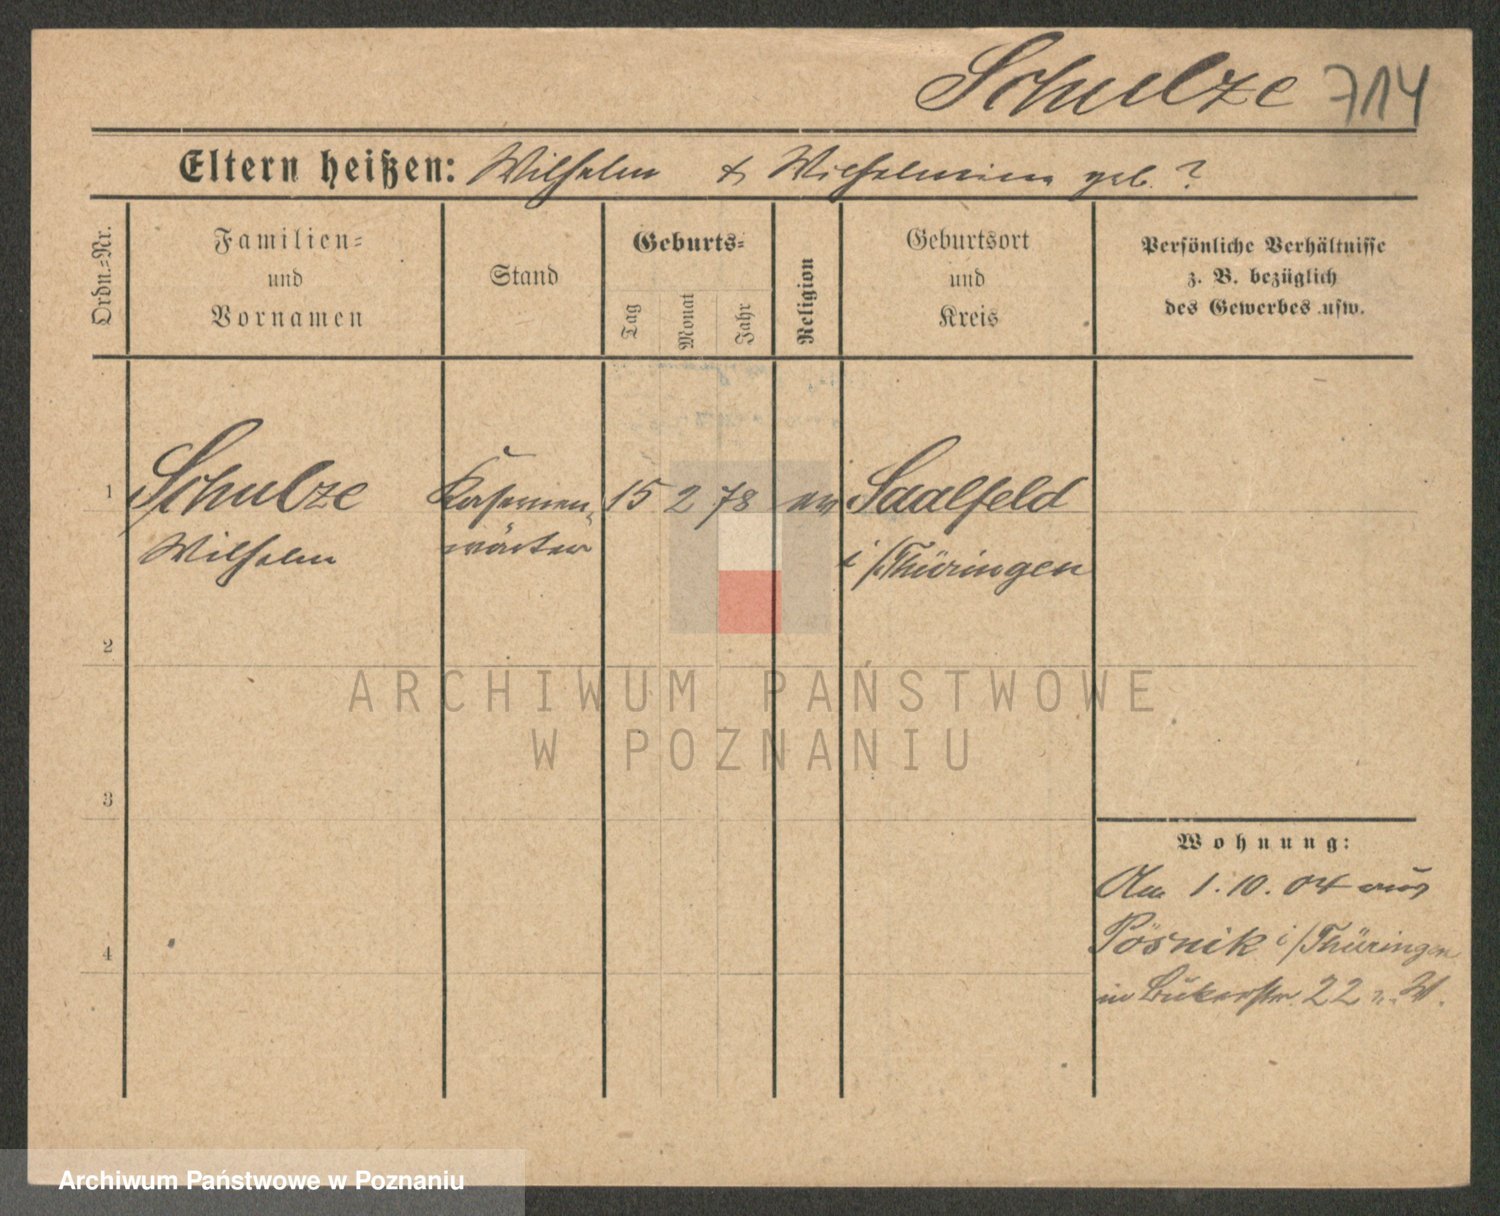 Schulze 714
Eltern heißen: Wilhelm & Wilhelmine geb. ?
Ordn.-Nr.
Familien-
und
Vornamen
Stand
Geburts-
Tag
Monat
Jahr
Religion
Geburtsort
und
Kreis
Persönliche Verhältnisse
z. B. bezüglich
des Gewerbes usw.
1 Schulze Kasernen- 15 2 78 ev Saalfeld
Wilhelm wärter i/Thüringen
2
3
4
ARCHIWUM PAŃSTWOWE
W POZNANIU
Wohnung:
Am 1.10.04 aus
Pösnik i/Thüringen
in 22
Archiwum Państwowe w Poznaniu